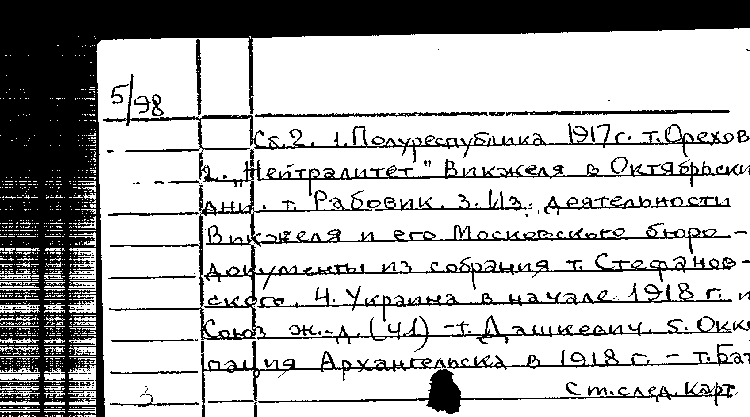 5/98
Сб.2. 1.Полуреспублика 1917г. т.Орехов
2. „Нейтралитет" Викжеля в Октябрьски
дни. т. Рабовик. 3. Из. деятельности
Викжеля и его Московского бюро -
документы из собрания т. Стефанов-
ского. 4. Украина в начале 1918 г. и
Союз ж.-д. (ч1) - т. Дашкевич. 5. Окку
пация Архангельска в 1918 г. - т.Бат
3 см.след. карт.